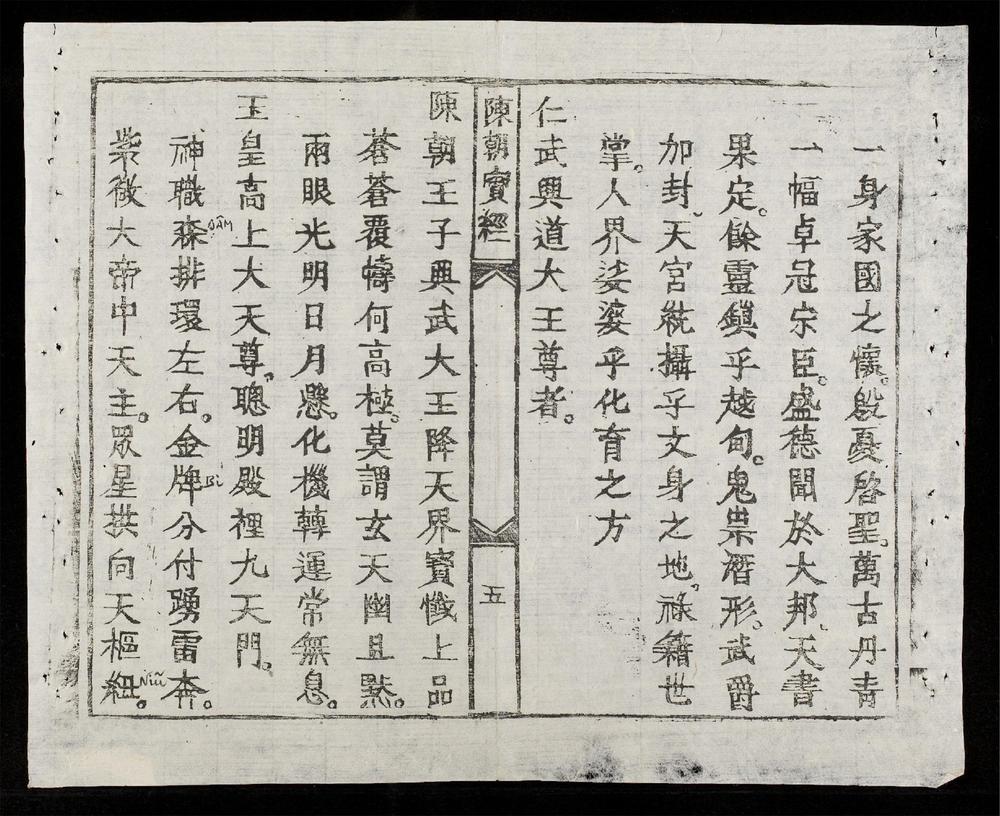 一身家國之懷。殷憂啓聖。萬古丹青
一幅卓冠宗臣。盛德聞於大邦。天書
果定。餘靈鎮乎越甸。鬼祟潛形。武爵
加封。天宮統攝乎文身之地。祿籍世
掌。人界娑婆乎化育之方
仁武興道大王尊者。
陳朝寶經
五
陳朝王子興武大王降天界寶懺上品
蒼蒼覆幬何高極。莫謂玄天幽且默。
兩眼光明日月懸。化機轉運常無息。
玉皇高上大天尊。聰明殿裡九天門。
神職森排環左右。金牌分付踴雷奔。
紫微大帝中天主。眾星拱向天樞紐。
Bì
Niữ